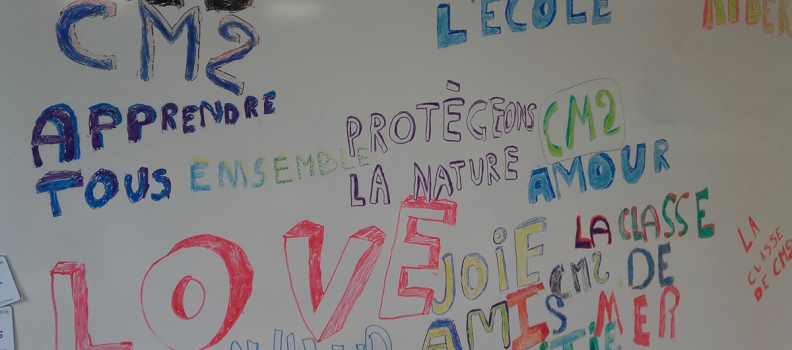 CM2
L'ÉCOLE
AIDER
APPRENDRE
TOUS ENSEMBLE
PROTÈGEONS
LA NATURE
CM2
AMOUR
LOVE
JOIE
LA CLASSE
CM2 DE
MER
AMIS
LA
CLASSE
DE CM2